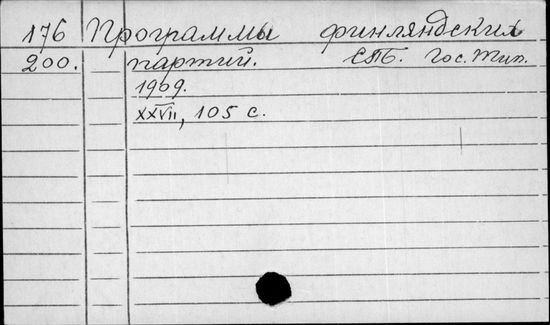 176 Программы финляндских
200. партий. СПБ. Гос. Тип.
1909.
XXVII, 105 с.